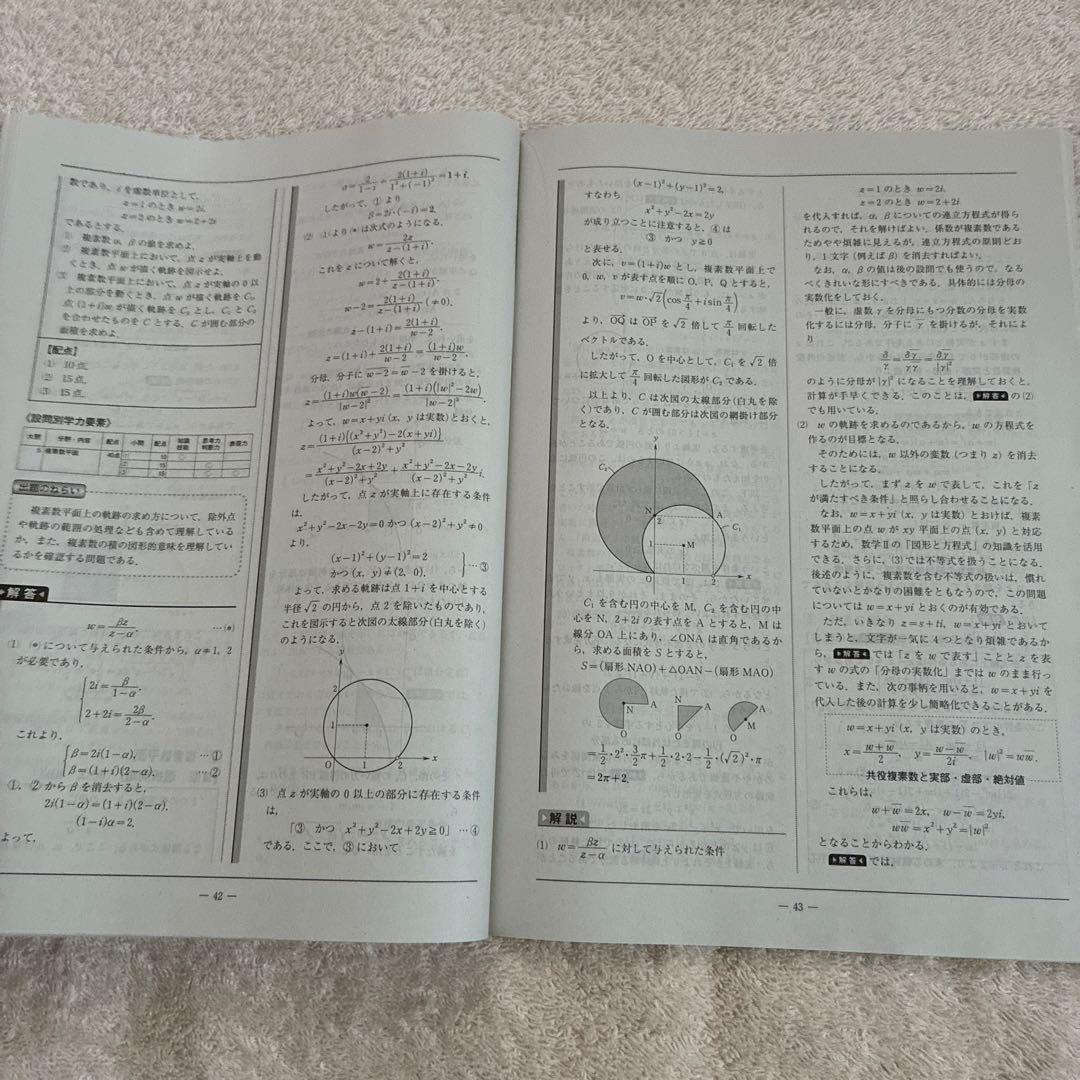 数であり，iを虚数単位として，
z=1のとき w=2i，
z=2のとき w=2+2i
であるとする．
(1) 複素数α，βの値を求めよ．
(2) 複素数平面上において，点zが実軸上を動
くとき，点wが描く軌跡を図示せよ．
(3) 複素数平面上において，点zが実軸の0以
上の部分を動くとき，点wが描く軌跡をC₁，
点(1+i)wが描く軌跡をC₂とし，C₁とC₂
を合わせたものをCとする．Cが囲む部分の
面積を求めよ．
【配点】
(1) 10点．
(2) 15点．
(3) 15点．
《設問別学力要素》
大問 分野・内容 配点 小問 配点 知識技能 思考力判断力 表現力
5 複素数平面 40点 (1) 10 ○
(2) 15 ○
(3) 15 ○
出題のねらい
複素数平面上の軌跡の求め方について，除外点
や軌跡の範囲の処理なども含めて理解している
か，また，複素数の積の図形的意味を理解してい
るかを確認する問題である．
解答
w=βz/(z-α)． …(*)
(1) (*)について与えられた条件から，α≠1，2
が必要であり，
2i=β/(1-α)，
2+2i=2β/(2-α)．
これより，
β=2i(1-α)， …①
β=(1+i)(2-α)． …②
①，②からβを消去すると，
2i(1-α)=(1+i)(2-α)，
(1-i)α=2，
よって，
α=2/(1-i)=2(1+i)/(1²+(-1)²)=1+i．
したがって，①より
β=2i・(-i)=2．
(2) (1)より(*)は次式のようになる．
w=2z/(z-(1+i))．
これをzについて解くと，
w=2+2(1+i)/(z-(1+i))，
w-2=2(1+i)/(z-(1+i)) (≠0)，
z-(1+i)=2(1+i)/(w-2)，
z=(1+i)+2(1+i)/(w-2)=(1+i)w/(w-2)．
分母，分子に w̅-̅2̅=w̅-2 を掛けると，
z=(1+i)w(w̅-2)/|w-2|²=(1+i)(|w|²-2w)/|w-2|²．
よって，w=x+yi(x，yは実数)とおくと，
z=(1+i){(x²+y²)-2(x+yi)}/((x-2)²+y²)
=(x²+y²-2x+2y)/((x-2)²+y²)+(x²+y²-2x-2y)/((x-2)²+y²)i．
したがって，点zが実軸上に存在する条件
は，
x²+y²-2x-2y=0かつ(x-2)²+y²≠0
より，
(x-1)²+(y-1)²=2
かつ(x, y)≠(2, 0)． …③
よって，求める軌跡は点1+iを中心とする
半径√2の円から，点2を除いたものであり，
これを図示すると次図の太線部分(白丸を除く)
のようになる．
y
1
O 1 2 x
(3) 点zが実軸の0以上の部分に存在する条件
は，
「③ かつ x²+y²-2x+2y≧0」 …④
である．ここで，③において
— 42 —
(x-1)²+(y-1)²=2，
すなわち
x²+y²-2x=2y
が成り立つことに注意すると，④は
③ かつ y≧0
と表せる．
次に，v=(1+i)wとし，複素数平面上で
0，w，vが表す点を順にO，P，Qとすると，
v=w・√2(cosπ/4+i sinπ/4)
より，OQ→はOP→を√2倍してπ/4回転した
ベクトルである．
したがって，Oを中心として，C₁を√2倍
に拡大してπ/4回転した図形がC₂である．
以上より，Cは次図の太線部分(白丸を除
く)であり，Cが囲む部分は次図の網掛け部分
となる．
y
C₂
N
2
A
C₁
1
M
O 1 2 x
C₁を含む円の中心をM，C₂を含む円の中
心をN，2+2iの表す点をAとすると，Mは
線分OA上にあり，∠ONAは直角であるか
ら，求める面積をSとすると，
S=(扇形NAO)+△OAN-(扇形MAO)
N A O
N A O
A M O
=1/2・2²・3/2π+1/2・2・2-1/2・(√2)²・π
=2π+2．
解説
(1) w=βz/(z-α)に対して与えられた条件
z=1のとき w=2i，
z=2のとき w=2+2i
を代入すれば，α，βについての連立方程式が得ら
れるので，それを解けばよい．係数が複素数であ
るためやや煩雑に見えるが，連立方程式の原則どお
り，1文字(例えばβ)を消去すればよい．
なお，α，βの値は後の設問でも使うので，なる
べくきれいな形にすべきである．具体的には分母の
実数化をしておく．
一般に，虚数γを分母にもつ分数の分母を実数
化するには分母，分子にγ̅を掛けるが，それによ
り
∂/γ=∂γ̅/γγ̅=∂γ̅/|γ|²
のように分母が|γ|²になることを理解しておくと，
計算が手早くできる．このことは，解答の(2)
でも用いている．
(2) wの軌跡を求めるのであるから，wの方程式を
作るのが目標となる．
そのためには，w以外の変数(つまりz)を消去
することになる．
したがって，まずzをwで表して，これを「z
が満たすべき条件」と照らし合わせることになる．
なお，w=x+yi(x，yは実数)とおけば，複素
数平面上の点wがxy平面上の点(x, y)と対応
するため，数学Ⅱの「図形と方程式」の知識を活用
できる．さらに，(3)では不等式を扱うことになる．
後述のように，複素数を含む不等式の扱いは，慣れ
ていないとかなりの困難をともなうので，この問題
についてはw=x+yiとおくのが有効である．
ただ，いきなりz=s+ti，w=x+yiとおいて
しまうと，文字が一気に4つとなり煩雑であるか
ら，解答では「zをwで表す」こととzを表
すwの式の「分母の実数化」まではwのまま行っ
ている．また，次の事柄を用いると，w=x+yiを
代入した後の計算を少し簡略化できることがある．
w=x+yi(x，yは実数)のとき，
x=(w+w̅)/2，y=(w-w̅)/2i，|w|²=ww̅．
共役複素数と実部・虚部・絶対値
これらは，
w+w̅=2x，w-w̅=2yi，
ww̅=x²+y²=|w|²
となることからわかる．
解答では，
— 43 —